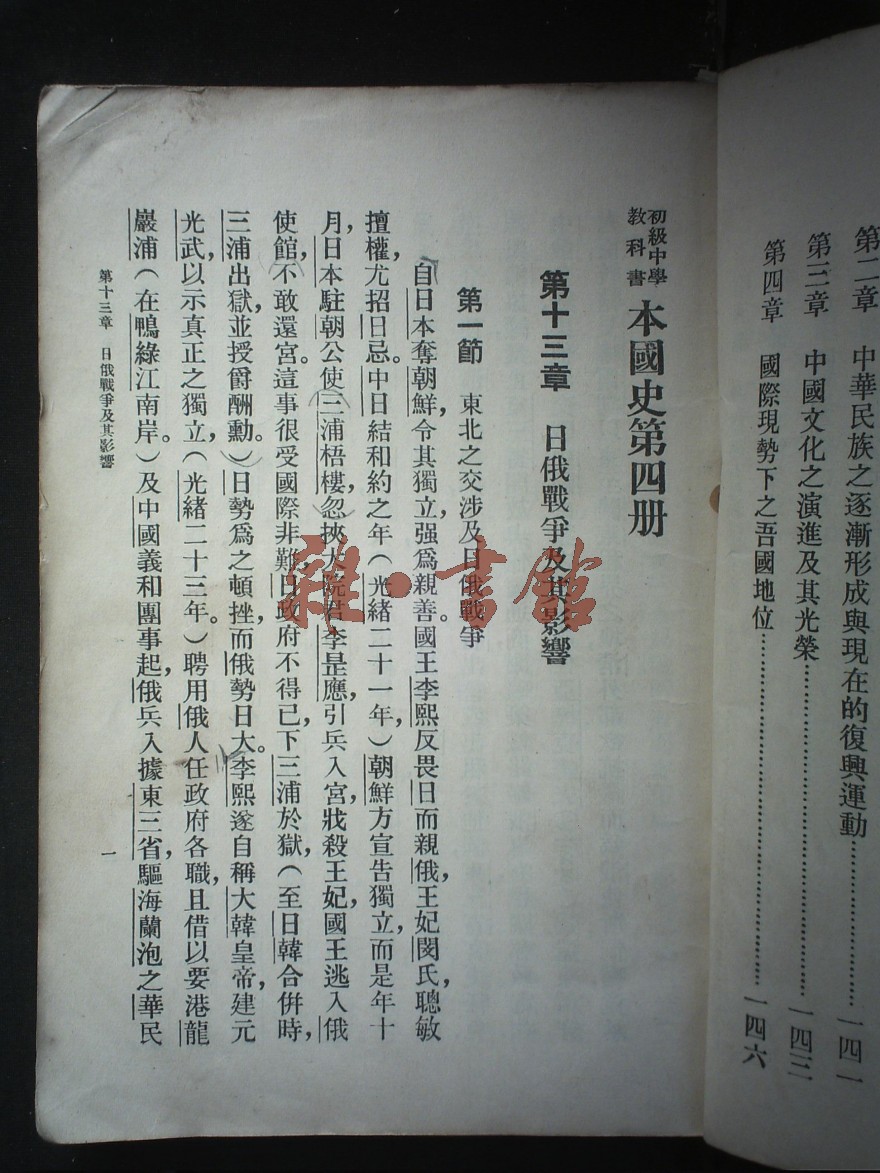 第二章　中華民族之逐漸形成與現在的復興運動……………一四一
第三章　中國文化之演進及其光榮……………一四三
第四章　國際現勢下之吾國地位……………一四六
初級中學
教科書
本國史第四册
第十三章　日俄戰爭及其影響
第一節　東北之交涉及日俄戰爭
自日本奪朝鮮，令其獨立，强爲親善。國王李熙反畏日而親俄，王妃閔氏，聰敏
擅權，尤招日忌。中日結和約之年（光緒二十一年，）朝鮮方宣告獨立，而是年十
月，日本駐朝公使三浦梧樓，忽挾大院君李昰應，引兵入宮，戕殺王妃，國王逃入俄
使館，不敢還宮。這事很受國際非難，日政府不得已，下三浦於獄，（至日韓合併時，
三浦出獄，並授爵酬勳。）日勢爲之頓挫，而俄勢日大。李熙遂自稱大韓皇帝，建元
光武，以示真正之獨立，（光緒二十三年。）聘用俄人任政府各職，且借以要港龍
巖浦（在鴨綠江南岸。）及中國義和團事起，俄兵入據東三省，驅海蘭泡之華民
第十三章　日俄戰爭及其影響
一
雜·書館